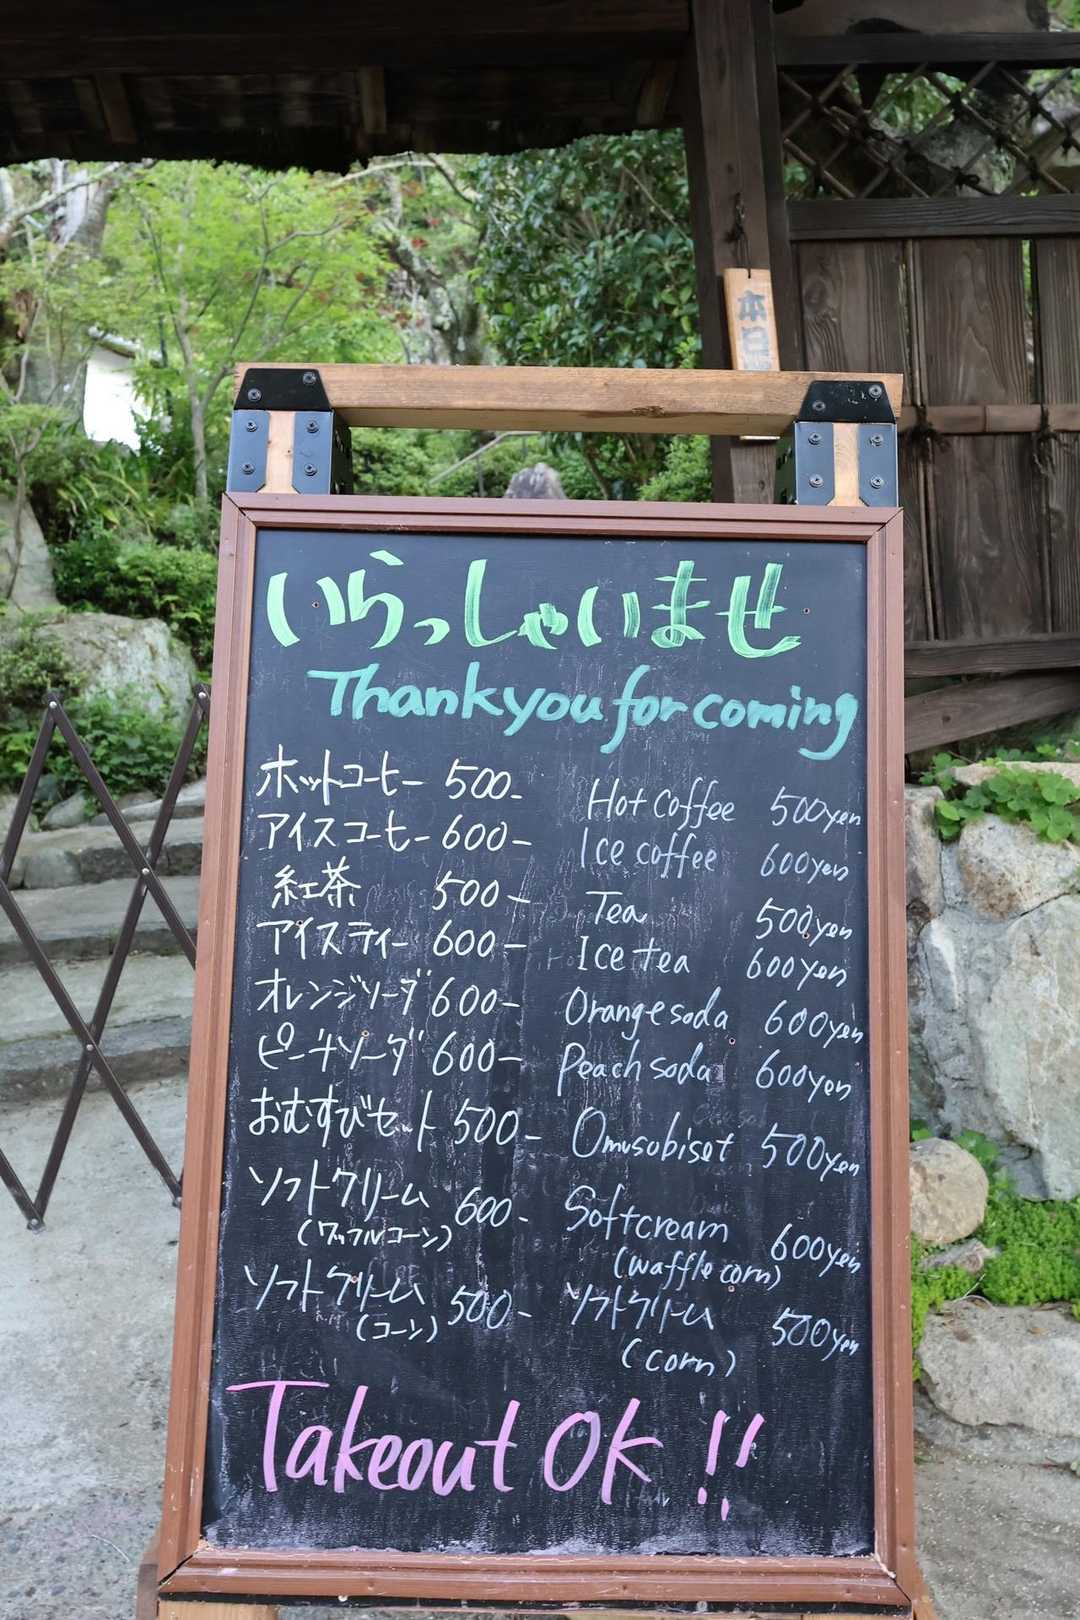 本日
いらっしゃいませ
Thank you for coming
ホットコーヒー 500-
Hot coffee 500yen
アイスコーヒー 600-
Ice coffee 600yen
紅茶 500-
Tea 500yen
アイスティー 600-
Ice tea 600yen
オレンジソーダ 600-
Orange soda 600yen
ピーチソーダ 600-
Peach soda 600yen
おむすびセット 500-
Omusubiset 500yen
ソフトクリーム 600-
(ワッフルコーン)
Softcream 600yen
(waffle corn)
ソフトクリーム 500-
(コーン)
ソフトクリーム 500yen
(corn)
Takeout OK!!